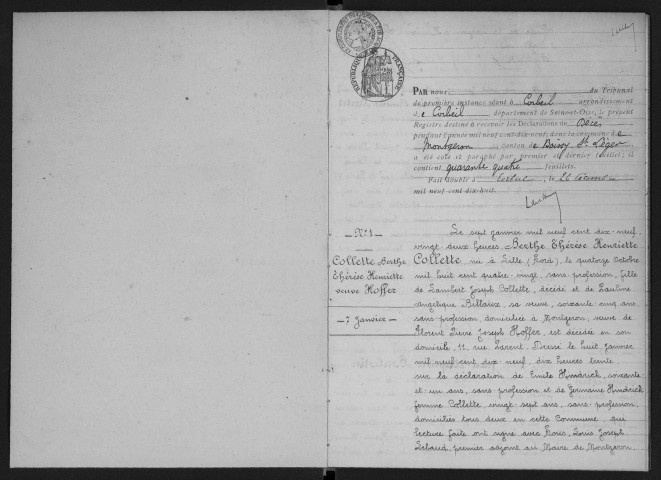 RÉPUBLIQUE FRANÇAISE
PAR nous du Tribunal
de première instance séant à Corbeil arrondissement
de Corbeil département de Seine-et-Oise, le présent
Registre destiné à recevoir les Déclarations du Décès
pendant l'année mil neuf cent dix-neuf, dans la commune de
Montgeron canton de Boissy St Léger
a été coté et paraphé par premier et dernier feuillet; il
contient quarante quatre feuillets.
Fait double à Corbeil, le 26
mil neuf cent dix-huit.
N° 1
Collette Berthe
Thérèse Henriette
veuve Hoffer
7 Janvier
Le sept Janvier mil neuf cent dix-neuf,
vingt deux heures, Berthe Thérèse Henriette
Collette née à Lille (Nord), le quatorze Octobre
mil huit cent quatre-vingt, sans profession, fille
de Lambert Joseph Collette, décédé et de Pauline
Angélique Billaux, sa veuve, soixante cinq ans,
sans profession, domiciliée à Montgeron, veuve de
Florent Pierre Joseph Hoffer, est décédée en son
domicile, 11, rue Parent. Dressé le huit Janvier
mil neuf cent dix-neuf, dix heures trente,
sur la déclaration de Emile Hendrick, soixante
et un ans, sans profession et de Germaine Hendrick,
femme Collette, vingt-sept ans, sans profession,
domiciliés tous deux en cette Commune, qui
lecture faite ont signé avec Nous, Louis Joseph
premier adjoint au Maire de Montgeron.